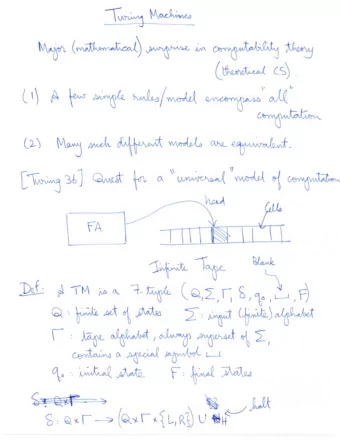 Turing Machines
Major (mathematical) surprise in computability theory
(theoretical CS).
(1) A few simple rules/model encompass "all"
computation
(2) Many such different models are equivalent.
[Turing 36] Quest for a "universal" model of computation
head
cells
FA
Infinite Tape
Blank
Def: A TM is a 7-tuple (Q, Σ, Γ, δ, q₀, ⊔, F)
Q: finite set of states Σ: input (finite) alphabet
Γ: tape alphabet, always superset of Σ,
contains a special symbol ⊔
q₀: initial state F: final states
halt
δ: Q×Γ → (Q×Γ×{L,R}) ∪ H